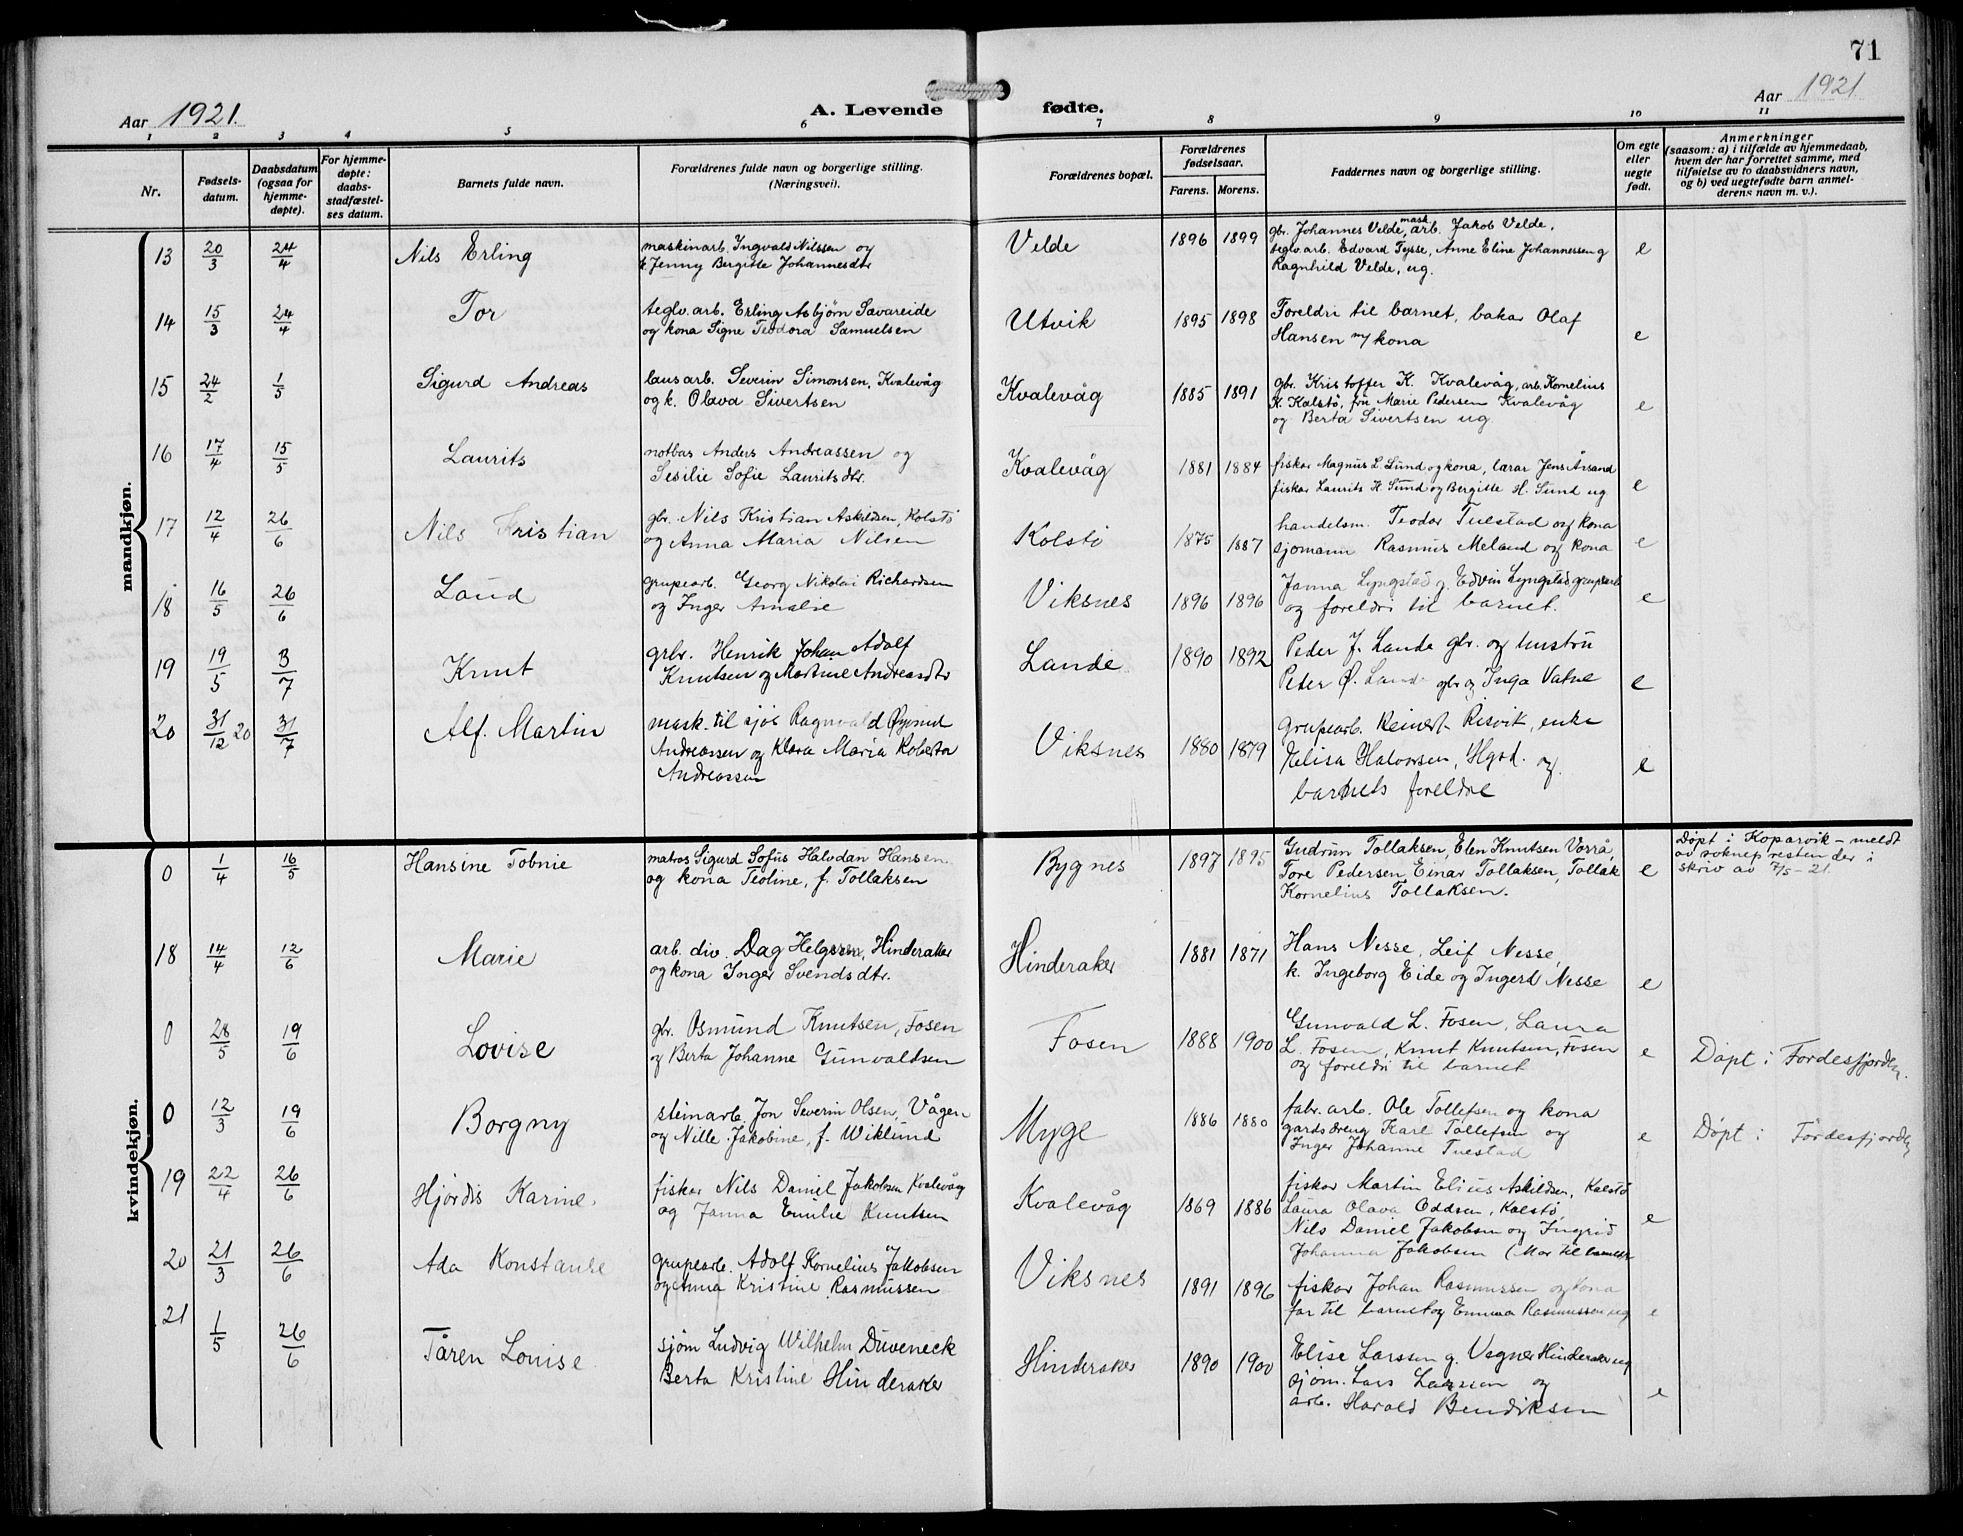 71
Aar 1921. A. Levende fødte. Aar 1921
1 2 3 4 5 6 7 8 9 10 11
Nr.
Fødsels-
datum.
Daabsdatum
(ogsaa for
hjemme-
døpte).
For hjemme-
døpte:
daabs-
stadfæstel-
ses datum.
Barnets fulde navn.
Forældrenes fulde navn og borgerlige stilling.
(Næringsvei).
Forældrenes bopæl.
Forældrenes
fødselsaar.
Farens. Morens.
Faddernes navn og borgerlig stilling.
Om egte
eller
uegte
født.
Anmerkninger
(saasom: a) i tilfælde av hjemmedaab,
hvem der har forrettet samme, med
tilføielse av to daabsvidners navn,
og b) ved uegtefødte barn anmel-
derens navn m. v.).
mandkjøn.
13 20/3 24/4 Nils Erling
maskinarb. Ingvald Nilssen og
k. Jenny Bergitte Johannesdtr
Velde 1896 1899
gbr. Johannes Velde, mask. arb. Jakob Velde,
teglv. arb. Edvard Tysse, Anne Eline Johannessen g
Ragnhild Velde, ug.
e
14 15/3 24/4 Tor
teglv. arb. Erling Asbjørn Savareide
og kona Signe Teodora Samuelsen
Utvik 1895 1898
Foreldri til barnet, bakar Olaf
Hansen m/ kona
e
15 24/2 1/5 Sigurd Andreas
lausarb. Severin Simonsen, Kvalevåg
og k. Olava Sivertsen
Kvalevåg 1885 1891
gbr. Kristoffer K. Kvalevåg, arb. Kornelius
K. Kalstø, fru Marie Pedersen Kvalevåg
og Berta Sivertsen ug
e
16 17/4 15/5 Laurits
notbas Anders Andreassen og
Sesilie Sofie Lauritsdtr.
Kvalevåg 1881 1884
fiskar Magnus L. Lund og kona, lærar Jens Årsand
fiskar Laurits H. Sund og Bergitte H. Sund ug
e
17 12/4 26/6 Nils Kristian
gbr. Nils Kristian Askildsen, Kolstø
og Anna Maria Nilsen
Kolstø 1875 1887
handelsm. Teodor Tuestad og kona
sjømann Rasmus Meland og kona
e
18 16/5 26/6
grupearb. Georg Nikolai Richardsen
og Inger Amalie
Viksnes 1896 1896
Janna Lyngstad g. Edvin Lyngstad grupearb
og foreldri til barnet.
e
19 19/5 3/7 Knut
grbr. Henrik Johan Adolf
Knutsen og Martine Andreasdtr
Lande 1890 1892
Peder J. Lande gbr. og hustru
Peder Ø. Lande gbr og Inga Vatne
e
20 31/12 20 31/7 Alf. Martin
mask. til sjøs Ragnvald Øyvind
Andreassen og Klara Maria Roberta
Andreassen
Viksnes 1880 1879
Grupearb. Reinert Risvik, enke
Helisa Halvorsen, Hgsd. og
barnets foreldre
e
kvindekjøn.
0 1/4 16/5 Hansine Tobnie
matros Sigurd Sofus Halvdan Hansen
og kona Teoline, f. Tollaksen
Bygnes 1897 1895
Gudrun Tollaksen, Elen Knutsen Vorrå,
Tore Pedersen, Einar Tollaksen, Tollak
Kornelius Tollaksen.
e
Døpt i Koparvik - meldt
av soknepresten der i
skriv av 7/5-21.
18 14/4 12/6 Marie
arb. div. Dag Helgesen, Hinderaker
og kona Inger Svendsdtr.
Hinderaker 1881 1871
Hans Nesse, Leif Nesse,
k. Ingeborg Eide og Ingerd Nesse
e
0 28/5 19/6 Lovise
gbr. Osmund Knutsen, Fosen
og Berta Johanne Gunvaldsen
Fosen 1888 1900
Gunvald L. Fosen, Laura
L. Fosen, Knut Knutsen, Fosen
og foreldri til barnet
e
Døpt i Førdesfjorden.
0 12/3 19/6 Borgny
steinarb. Jon Severin Olsen, Vågen
og Nille Jakobine, f. Wiklund
Myge 1886 1880
fabr. arb. Ole Tollefsen og kona
gardsdreng Karl Tollefsen og
Inger Johanne Tuestad
e
Døpt i Førdesfjorden
19 22/4 26/6 Hjørdis Karine
fiskar Nils Daniel Jakobsen Kvalevåg
og Janna Emilie Knutsen
Kvalevåg 1869 1886
fiskar Martin Elius Askildsen, Kalstø
Laura Olava Oddsen, Kalstø
Nils Daniel Jakobsen og Ingrid
Johanna Jakobsen (Mor til barnet)
e
20 21/3 26/6 Ada Konstanse
grupearb. Adolf Kornelius Jakobsen
og Anna Kristine Rasmussen
Viksnes 1891 1896
fiskar Johan Rasmussen og kona
far til barnet og Emma Rasmussen ug
e
21 1/5 26/6 Tåren Louise
sjøm Ludvig Wilhelm Düveneck
Berta Kristine Hinderaker
Hinderaker 1890 1900
Elise Larssen g. Vagner Hinderaker ug
sjøm. Lars Larssen og
arb. Harald Bendiksen
e